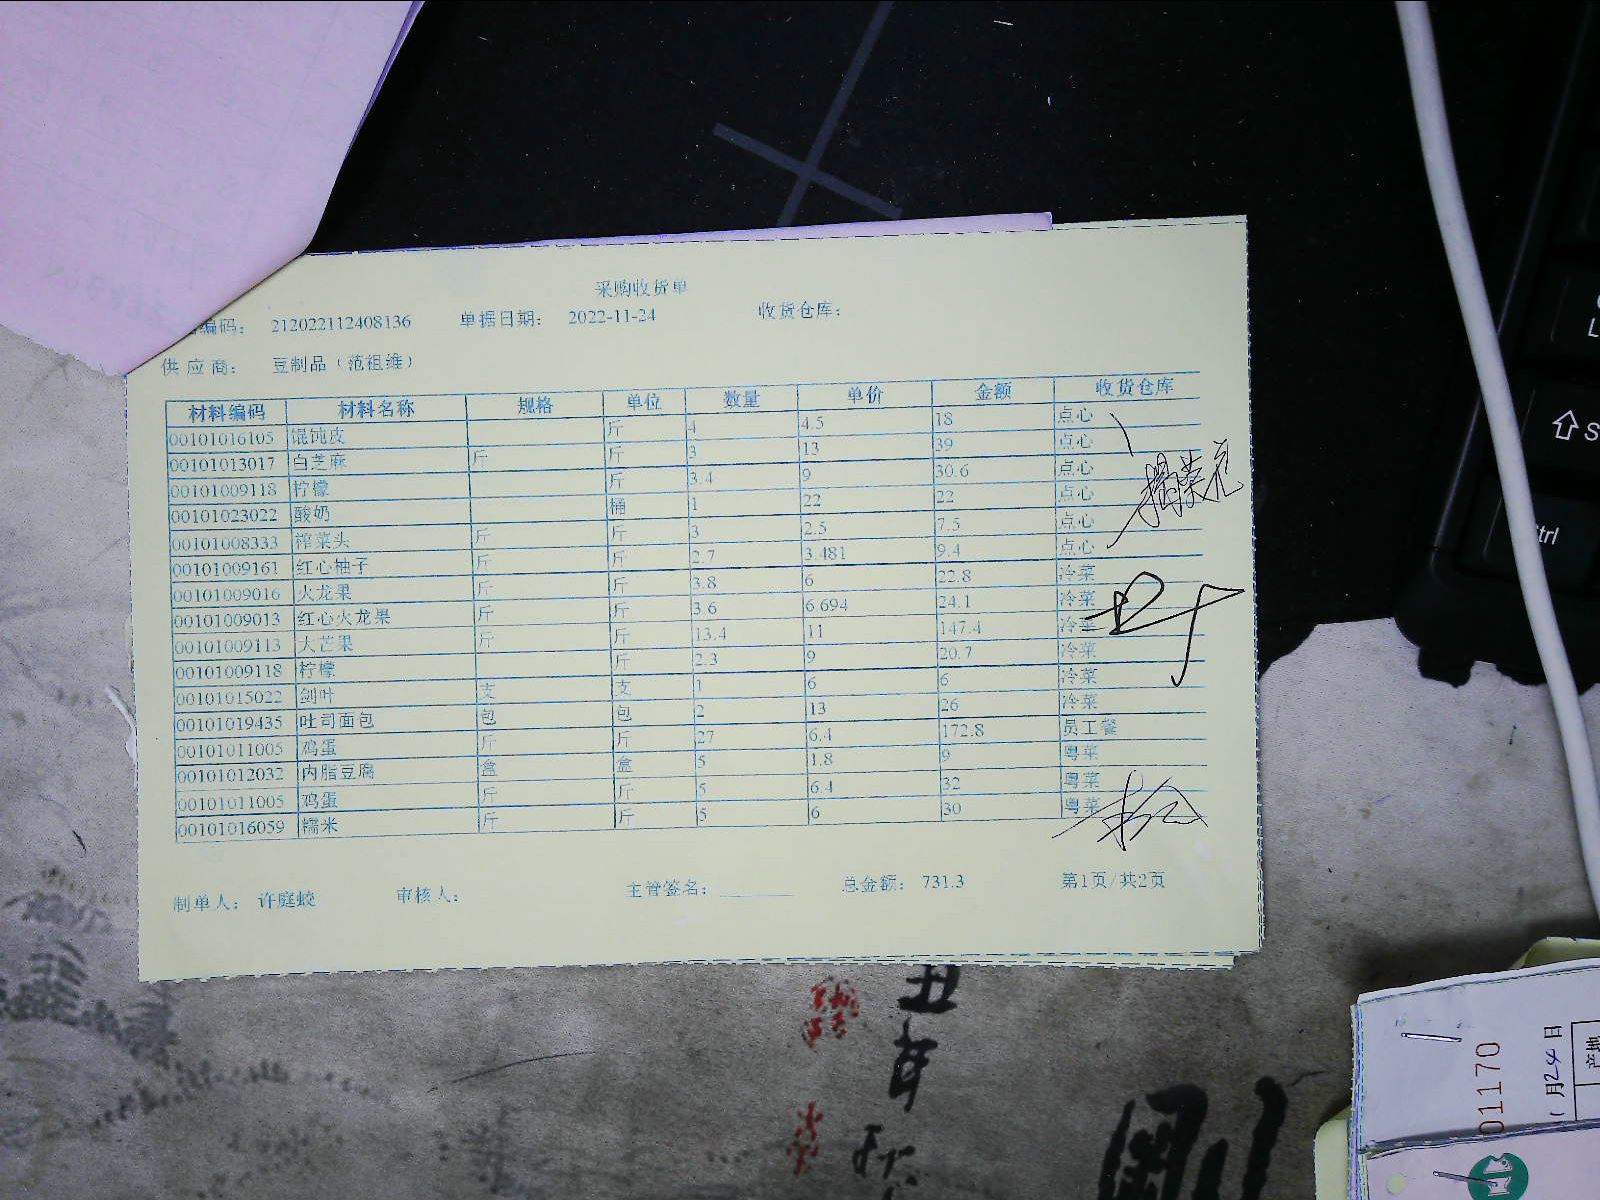 采购收货单
编码: 212022112408136 单据日期: 2022-11-24 收货仓库:
供应商: 豆制品(范祖维)
材料编码 材料名称 规格 单位 数量 单价 金额 收货仓库
00101016105 馄饨皮 斤 4 4.5 18 点心
00101013017 白芝麻 斤 斤 3 13 39 点心
00101009118 柠檬 斤 3.4 9 30.6 点心
00101023022 酸奶 桶 1 22 22 点心
00101008333 榨菜头 斤 斤 3 2.5 7.5 点心
00101009161 红心柚子 斤 斤 2.7 3.481 9.4 点心
00101009016 火龙果 斤 斤 3.8 6 22.8 冷菜
00101009013 红心火龙果 斤 斤 3.6 6.694 24.1 冷菜
00101009113 大芒果 斤 斤 13.4 11 147.4 冷菜
00101009118 柠檬 斤 2.3 9 20.7 冷菜
00101015022 剑叶 支 支 1 6 6 冷菜
00101019435 吐司面包 包 包 2 13 26 冷菜
00101011005 鸡蛋 斤 斤 27 6.4 172.8 员工餐
00101012032 内脂豆腐 盒 盒 5 1.8 9 粤菜
00101011005 鸡蛋 斤 斤 5 6.4 32 粤菜
00101016059 糯米 斤 斤 5 6 30 粤菜
制单人: 许庭蛟 审核人: 主管签名: 总金额: 731.3 第1页/共2页
01170
月24日
产地
丑年